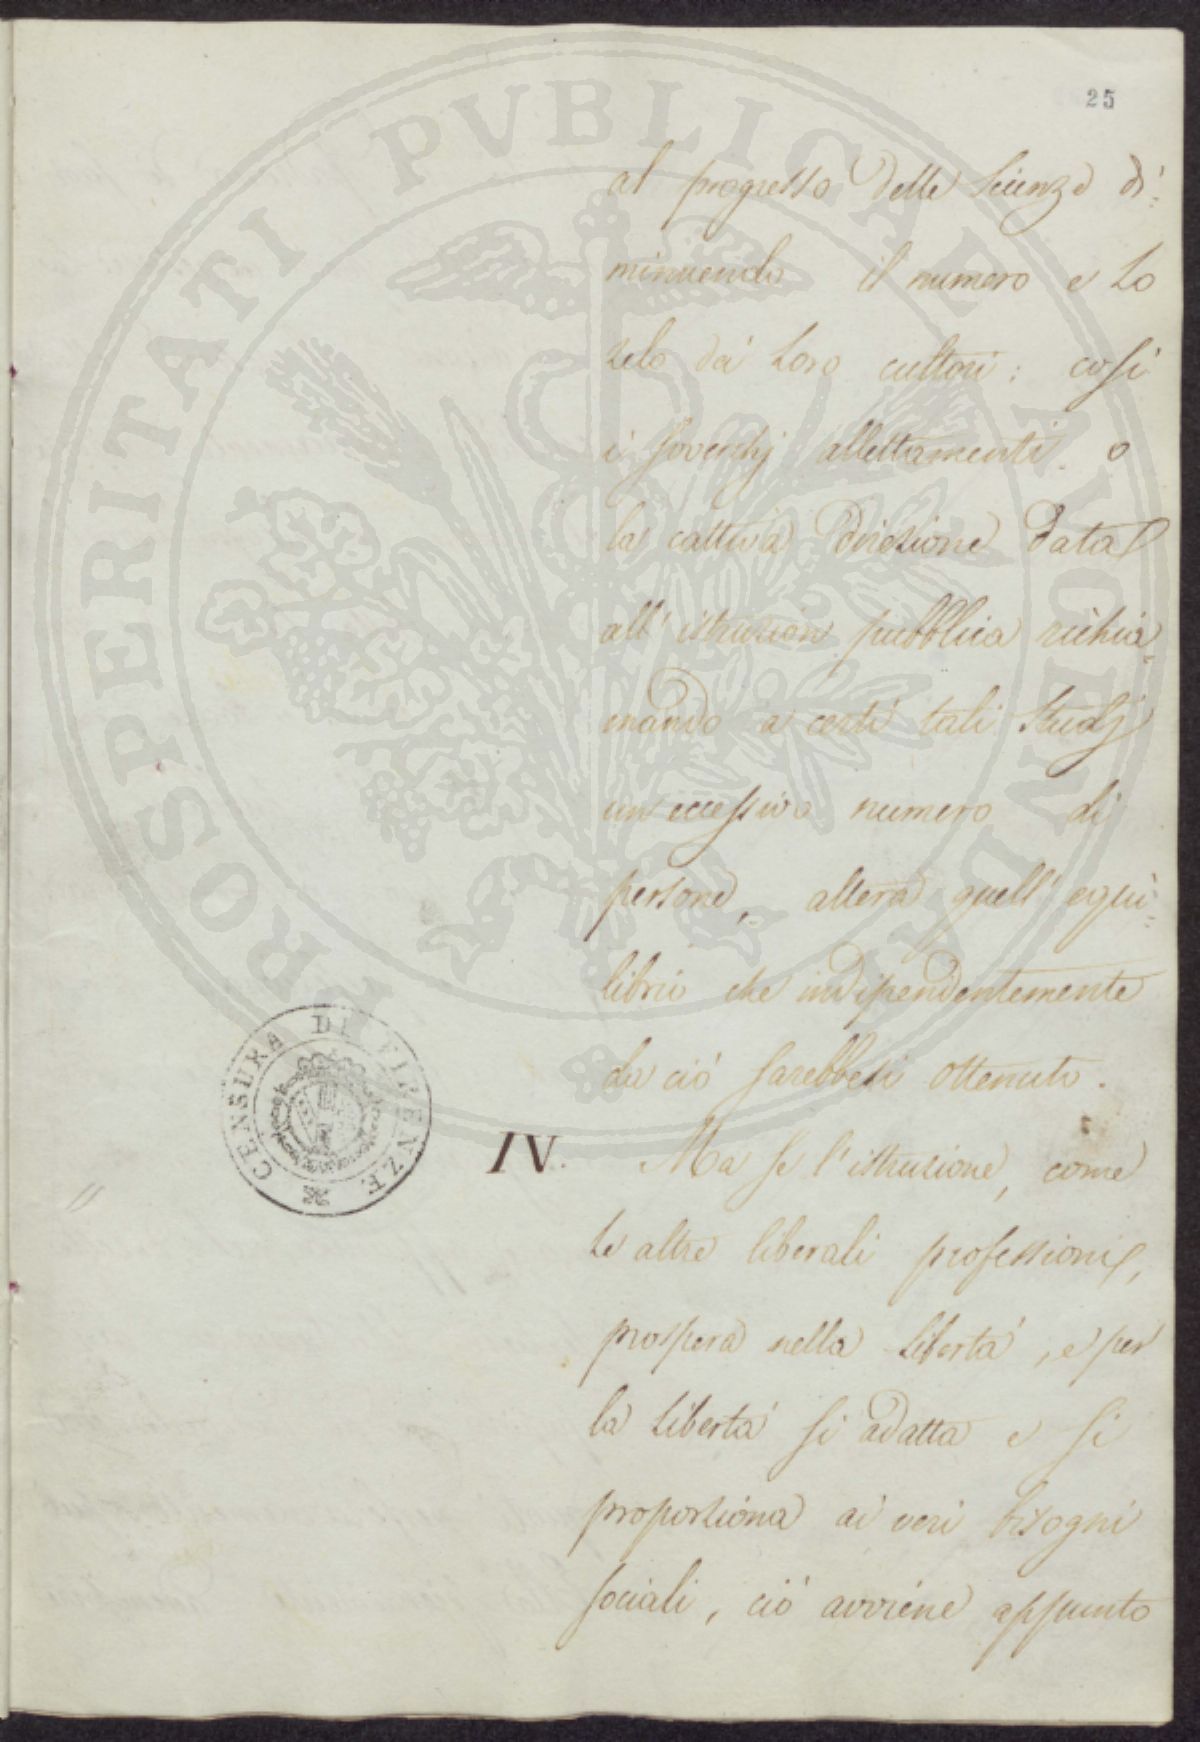 25
al progresso delle Scienze di:
minuendo il numero e lo
zelo dei loro cultori: così
i soverchj allettamenti o
la cattiva direzione data
all'istruzion pubblica richia=
mando a certi tali Studj
un eccessivo numero di
persone, altera quell'equi=
librio che indipendentemente
da ciò sarebbesi ottenuto.
IV. Ma se l'istruzione, come
le altre liberali professioni,
prospera nella libertà, e per
la libertà si adatta e si
proporziona ai veri bisogni
sociali, ciò avviene appunto
CENSURA DI FIRENZE
PROSPERITATI PVBLICAE AVGENDAE